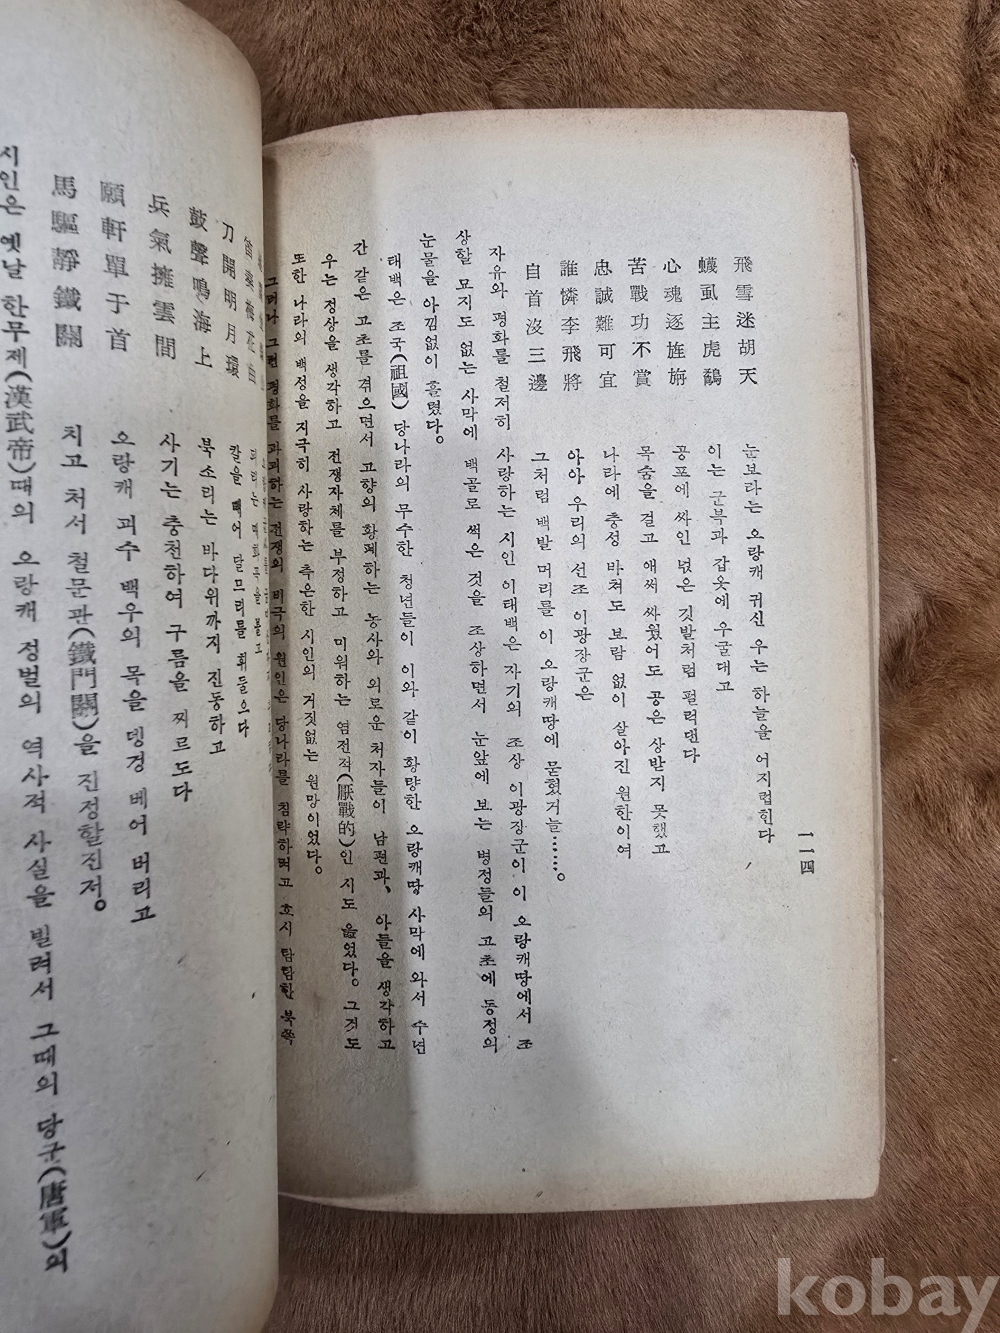 一一四
飛雪迷胡天 눈보라는 오랑캐 귀신 우는 하늘을 어지럽힌다
蟣虱主虎鶡 이는 군복과 갑옷에 우굴대고
心魂逐旌旃 공포에 싸인 넋은 깃발처럼 펄럭댄다
苦戰功不賞 목숨을 걸고 애써 싸웠어도 공은 상받지 못했고
忠誠難可宜 나라에 충성 바쳐도 보람 없이 살아진 원한이여
誰憐李飛將 아아 우리의 선조 이광장군은
自首沒三邊 그처럼 백발 머리를 이 오랑캐땅에 묻혔거늘……。
자유와 평화를 철저히 사랑하는 시인 이태백은 자기의 조상 이광장군이 이 오랑캐땅에서 조
상할 묘지도 없는 사막에 백골로 썩은 것을 조상하면서 눈앞에 보는 병정들의 고초에 동정의
눈물을 아낌없이 흘렸다。
태백은 조국(祖國) 당나라의 무수한 청년들이 이와 같이 황량한 오랑캐땅 사막에 와서 수년
간 같은 고초를 겪으면서 고향의 황폐하는 농사와 외로운 처자들이 남편과, 아들을 생각하고
우는 정상을 생각하고 전쟁자체를 부정하고 미워하는 염전적(厭戰的)인 시도 읊었다。그것도
또한 나라의 백성을 지극히 사랑하는 측은한 시인의 거짓없는 원망이었다。
그러나 그런 평화를 파괴하는 전쟁의 비극의 원인은 당나라를 침략하려고 호시 탐탐한 북쪽
笛奏梅花曲 피리는 매화곡을 불고
刀開明月環 칼을 빼어 달무리를 휘둘으다
鼓聲鳴海上 북소리는 바다위까지 진동하고
兵氣擁雲間 사기는 충천하여 구름을 찌르도다
願斬單于首 오랑캐 괴수 백우의 목을 뎅겅 베어 버리고
馬驅靜鐵關 치고 처서 철문관(鐵門關)을 진정할진저。
시인은 옛날 한무제(漢武帝)때의 오랑캐 정벌의 역사적 사실을 빌려서 그때의 당군(唐軍)의
kobay